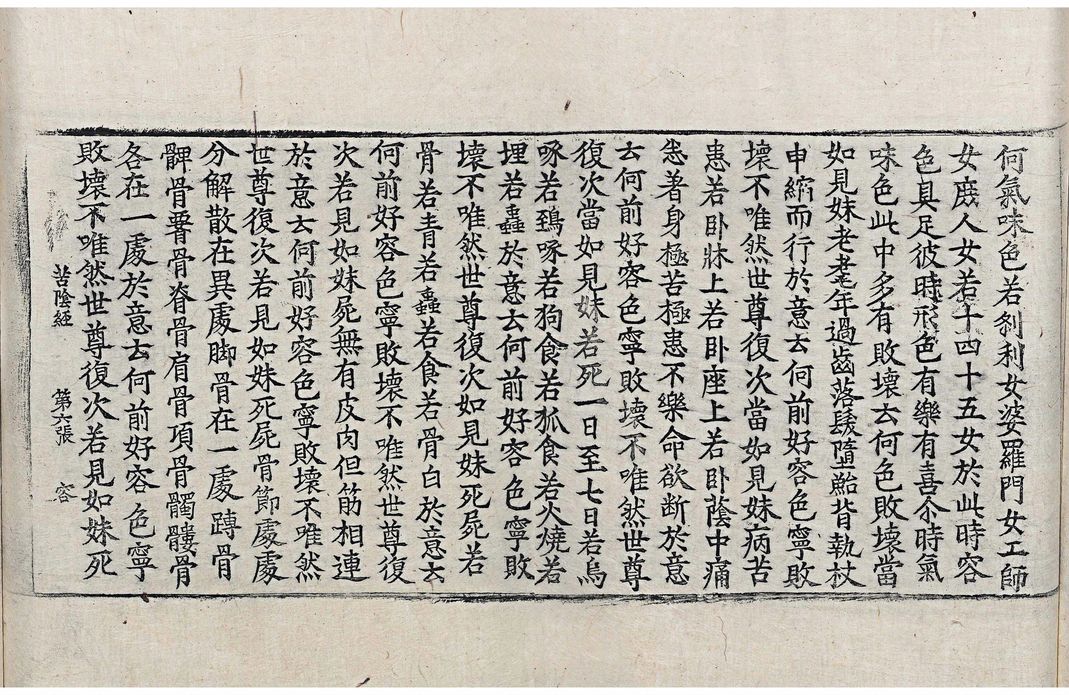 何氣味色若剎利女婆羅門女工師
女庶人女若十四十五女於此時容
色具足彼時形色有樂有喜尒時氣
味色此中多有敗壞云何色敗壞當
如見妹老耄年過齒落髮墮鮐背執杖
申縮而行於意云何前好容色寧敗
壞不唯然世尊復次當如見妹病苦
患若臥牀上若臥座上若臥蔭中痛
恙著身極苦極患不樂命欲斷於意
云何前好容色寧敗壞不唯然世尊
復次當如見妹若死一日至七日若烏
啄若鵄啄若狗食若狐食若火燒若
埋若蟲於意云何前好容色寧敗
壞不唯然世尊復次如見妹死屍若
骨若青若蟲若食若骨白於意云
何前好容色寧敗壞不唯然世尊復
次若見如妹屍無有皮肉但筋相連
於意云何前好容色寧敗壞不唯然
世尊復次若見如妹死屍骨節處處
分解散在異處脚骨在一處䏝骨
髀骨䯗骨脊骨肩骨項骨髑髏骨
各在一處於意云何前好容色寧
敗壞不唯然世尊復次若見如妹死
苦陰經 第六張 容